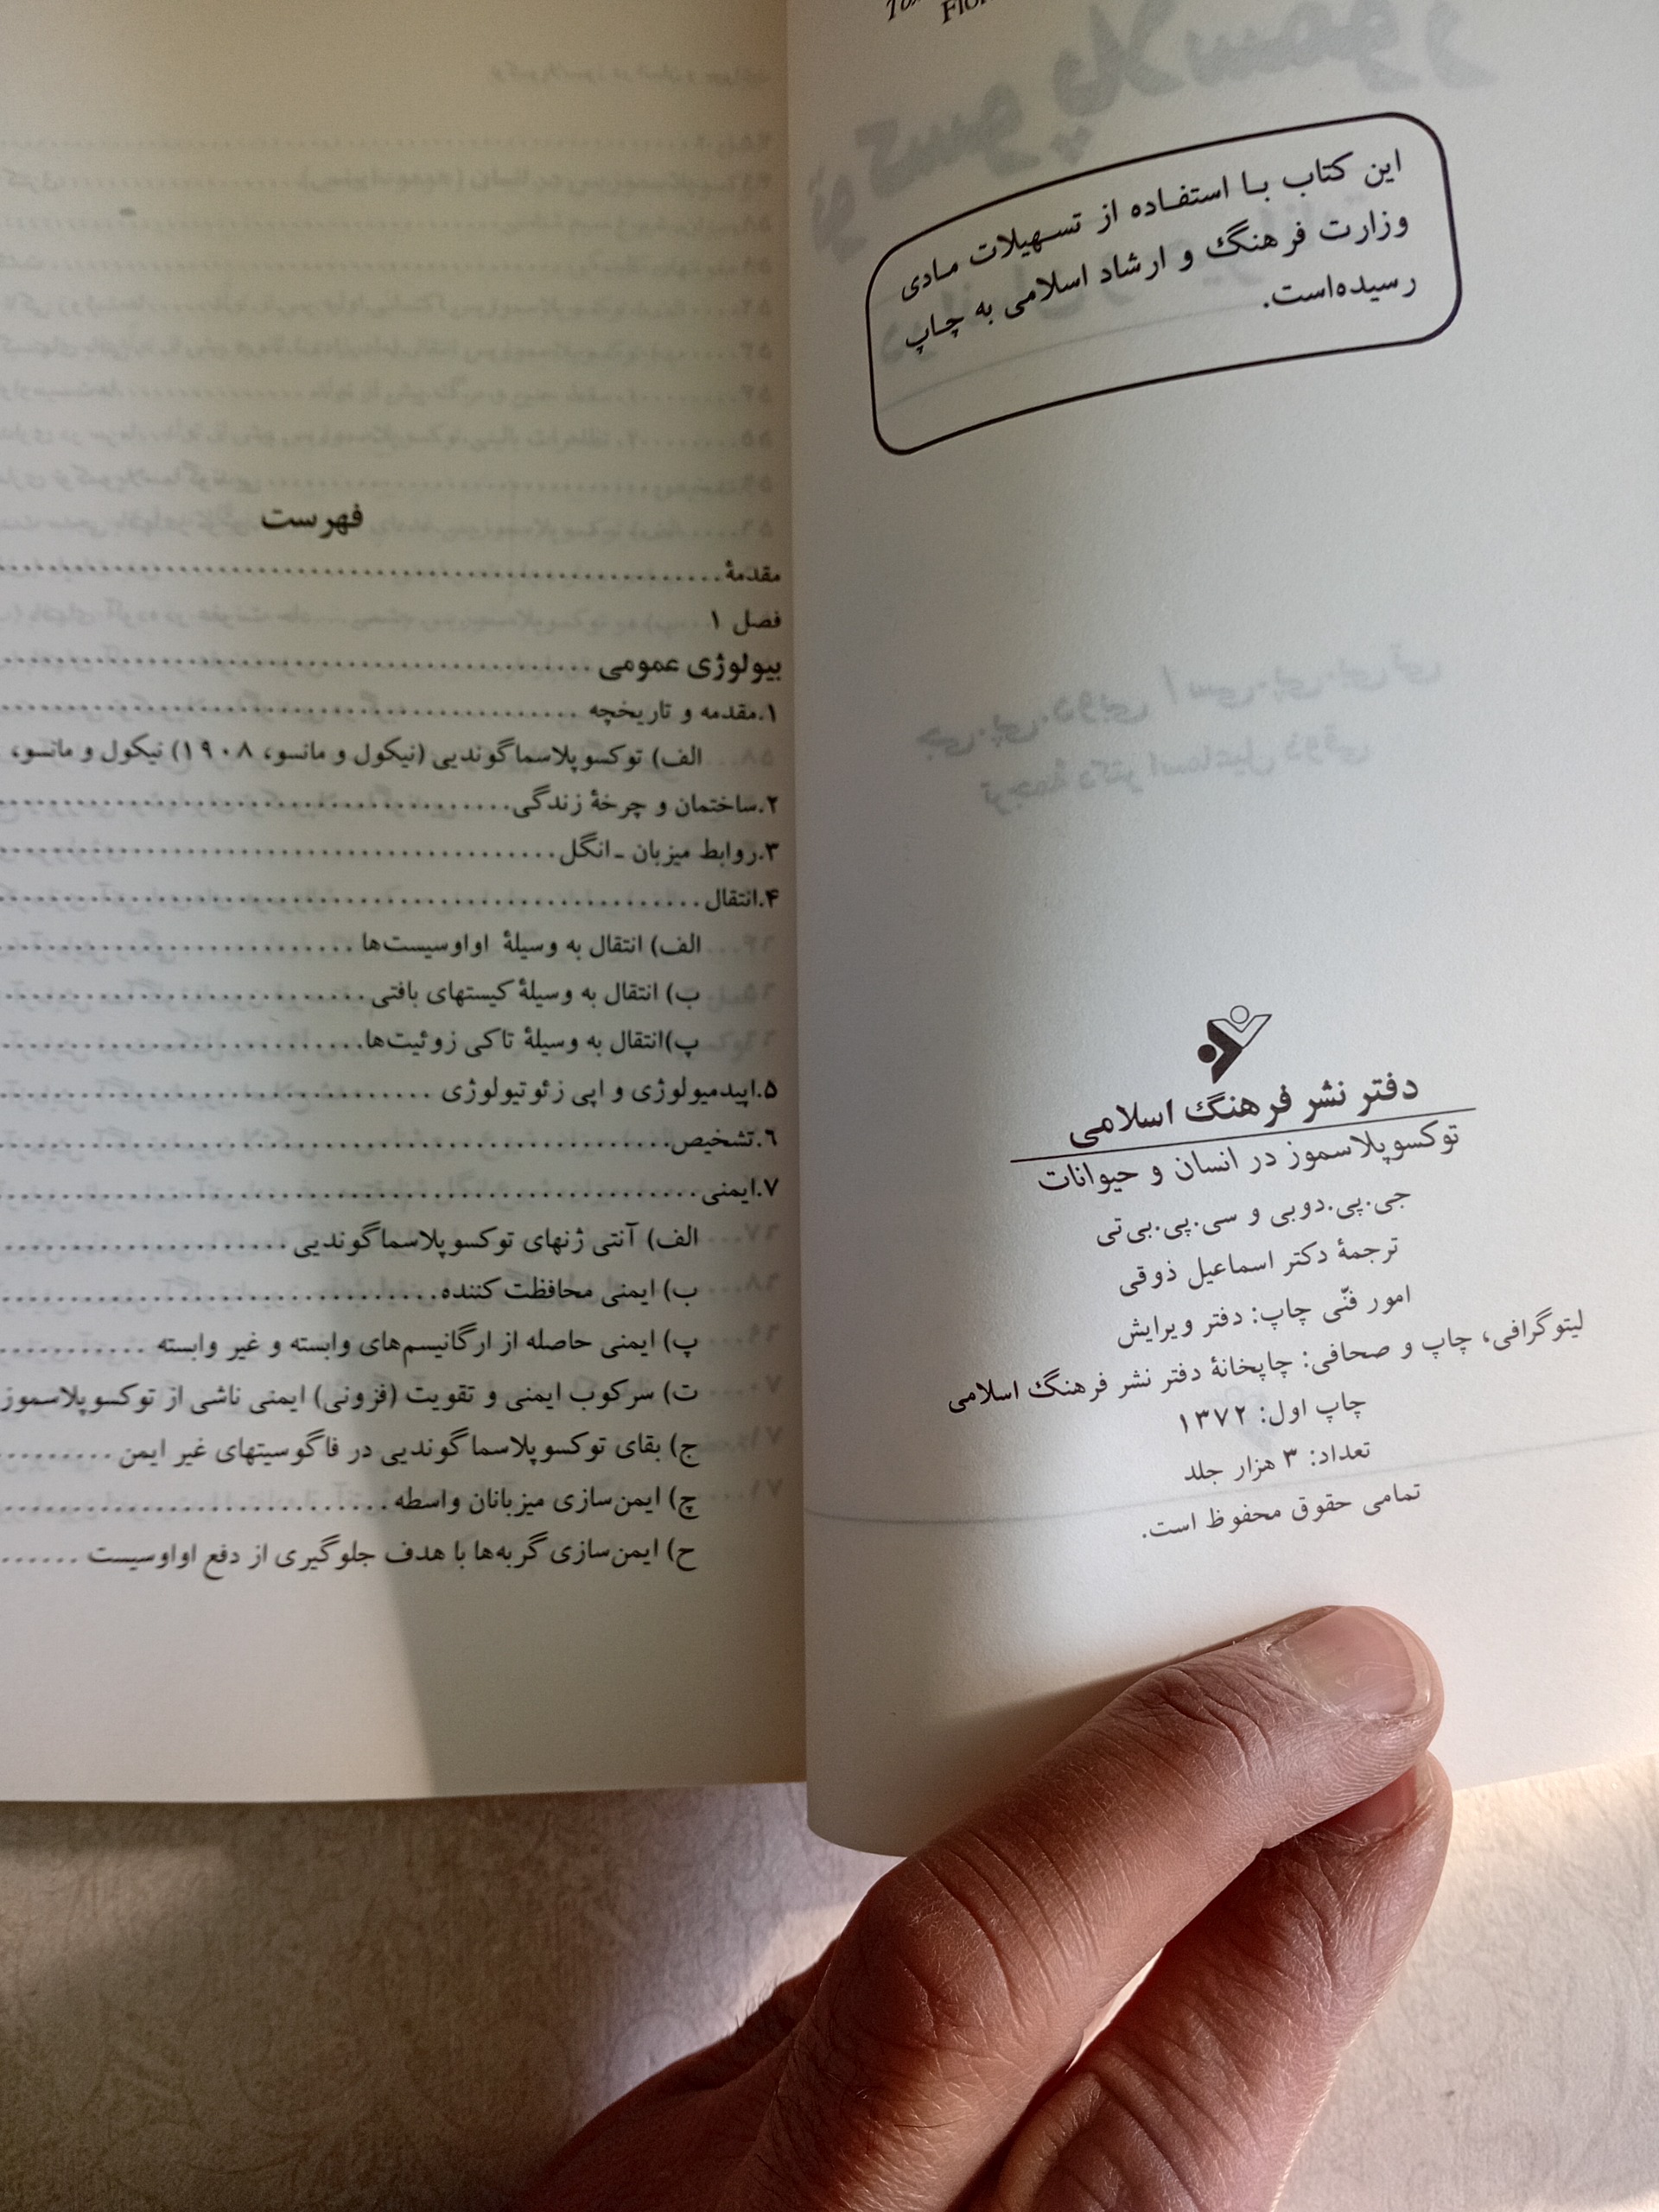 این کتاب با استفاده از تسهیلات مادی
وزارت فرهنگ و ارشاد اسلامی به چاپ
رسیده‌است.
دفتر نشر فرهنگ اسلامی
توکسوپلاسموز در انسان و حیوانات
جی.پی.دوبی و سی.پی.بی‌تی
ترجمۀ دکتر اسماعیل ذوقی
امور فنّی چاپ: دفتر ویرایش
لیتوگرافی، چاپ و صحافی: چاپخانۀ دفتر نشر فرهنگ اسلامی
چاپ اول: ۱۳۷۲
تعداد: ۳ هزار جلد
تمامی حقوق محفوظ است.
فهرست
مقدمۀ
فصل ۱
بیولوژی عمومی
۱.مقدمه و تاریخچه
الف) توکسوپلاسماگوندیی (نیکول و مانسو، ۱۹۰۸) نیکول و مانسو،
۲.ساختمان و چرخۀ زندگی
۳.روابط میزبان ـ انگل
۴.انتقال
الف) انتقال به وسیلۀ اواوسیست‌ها
ب) انتقال به وسیلۀ کیستهای بافتی
پ)انتقال به وسیلۀ تاکی زوئیت‌ها
۵.اپیدمیولوژی و اپی زئوتیولوژی
۶.تشخیص
۷.ایمنی
الف) آنتی ژنهای توکسوپلاسماگوندیی
ب) ایمنی محافظت کننده
پ) ایمنی حاصله از ارگانیسم‌های وابسته و غیر وابسته
ت) سرکوب ایمنی و تقویت (فزونی) ایمنی ناشی از توکسوپلاسموز
ج) بقای توکسوپلاسماگوندیی در فاگوسیتهای غیر ایمن
چ) ایمن‌سازی میزبانان واسطه
ح) ایمن‌سازی گربه‌ها با هدف جلوگیری از دفع اواوسیست